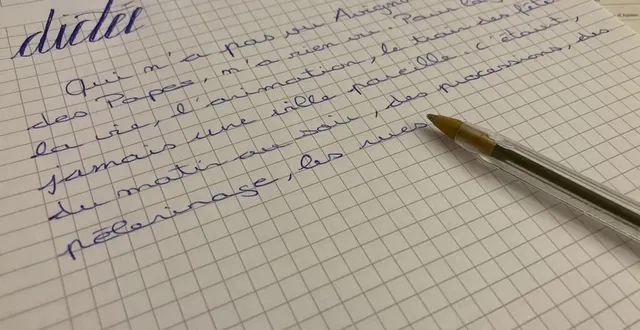 dictée
Qui n'a pas vu Avigno
des Papes, n'a rien vu. Pour la
la vie, l'animation, le train des fêtes
jamais une ville pareille. C'étaient,
du matin au soir, des processions, des
pèlerinage, les rues